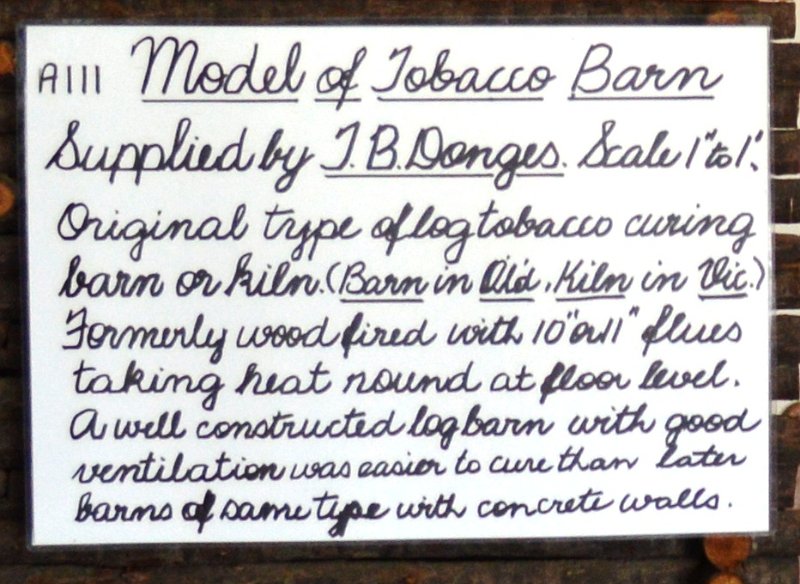 A111 Model of Tobacco Barn
Supplied by T.B.Donges. Scale 1" to 1'.
Original type of log tobacco curing
barn or kiln. (Barn in Qld, Kiln in Vic.)
Formerly wood fired with 10" or 11" flues
taking heat round at floor level.
A well constructed log barn with good
ventilation was easier to cure than later
barns of same type with concrete walls.